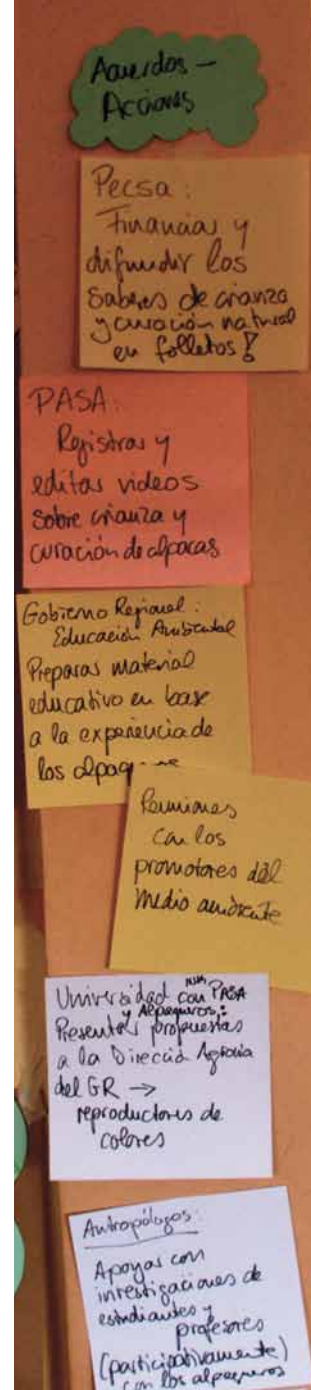 Acuerdos –
Acciones
Pecsa :
Financiar y
difundir los
Saberes de crianza
y curación natural
en folletos!
PASA:
Registrar y
editar videos
sobre crianza y
curación de alpacas
Gobierno Regional :
Educación Ambiental
Preparar material
educativo en base
a la experiencia de
los
Reuniones
con los
promotores del
medio ambiente
Universidad con PASA
y Alpaqueros:
Presentar propuestas
a la Direcció Agraria
del GR →
reproductores de
colores
Antropólogos:
Apoyar con
investigaciones de
estudiantes y
profesores
(participativamente)
con los alpaqueros